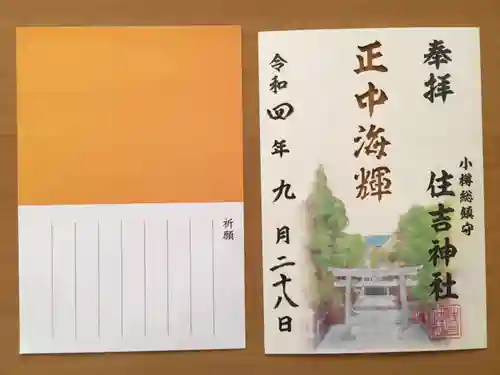 祈願
奉拝
小樽総鎮守
住吉神社
正中海輝
令和四年九月二十八日